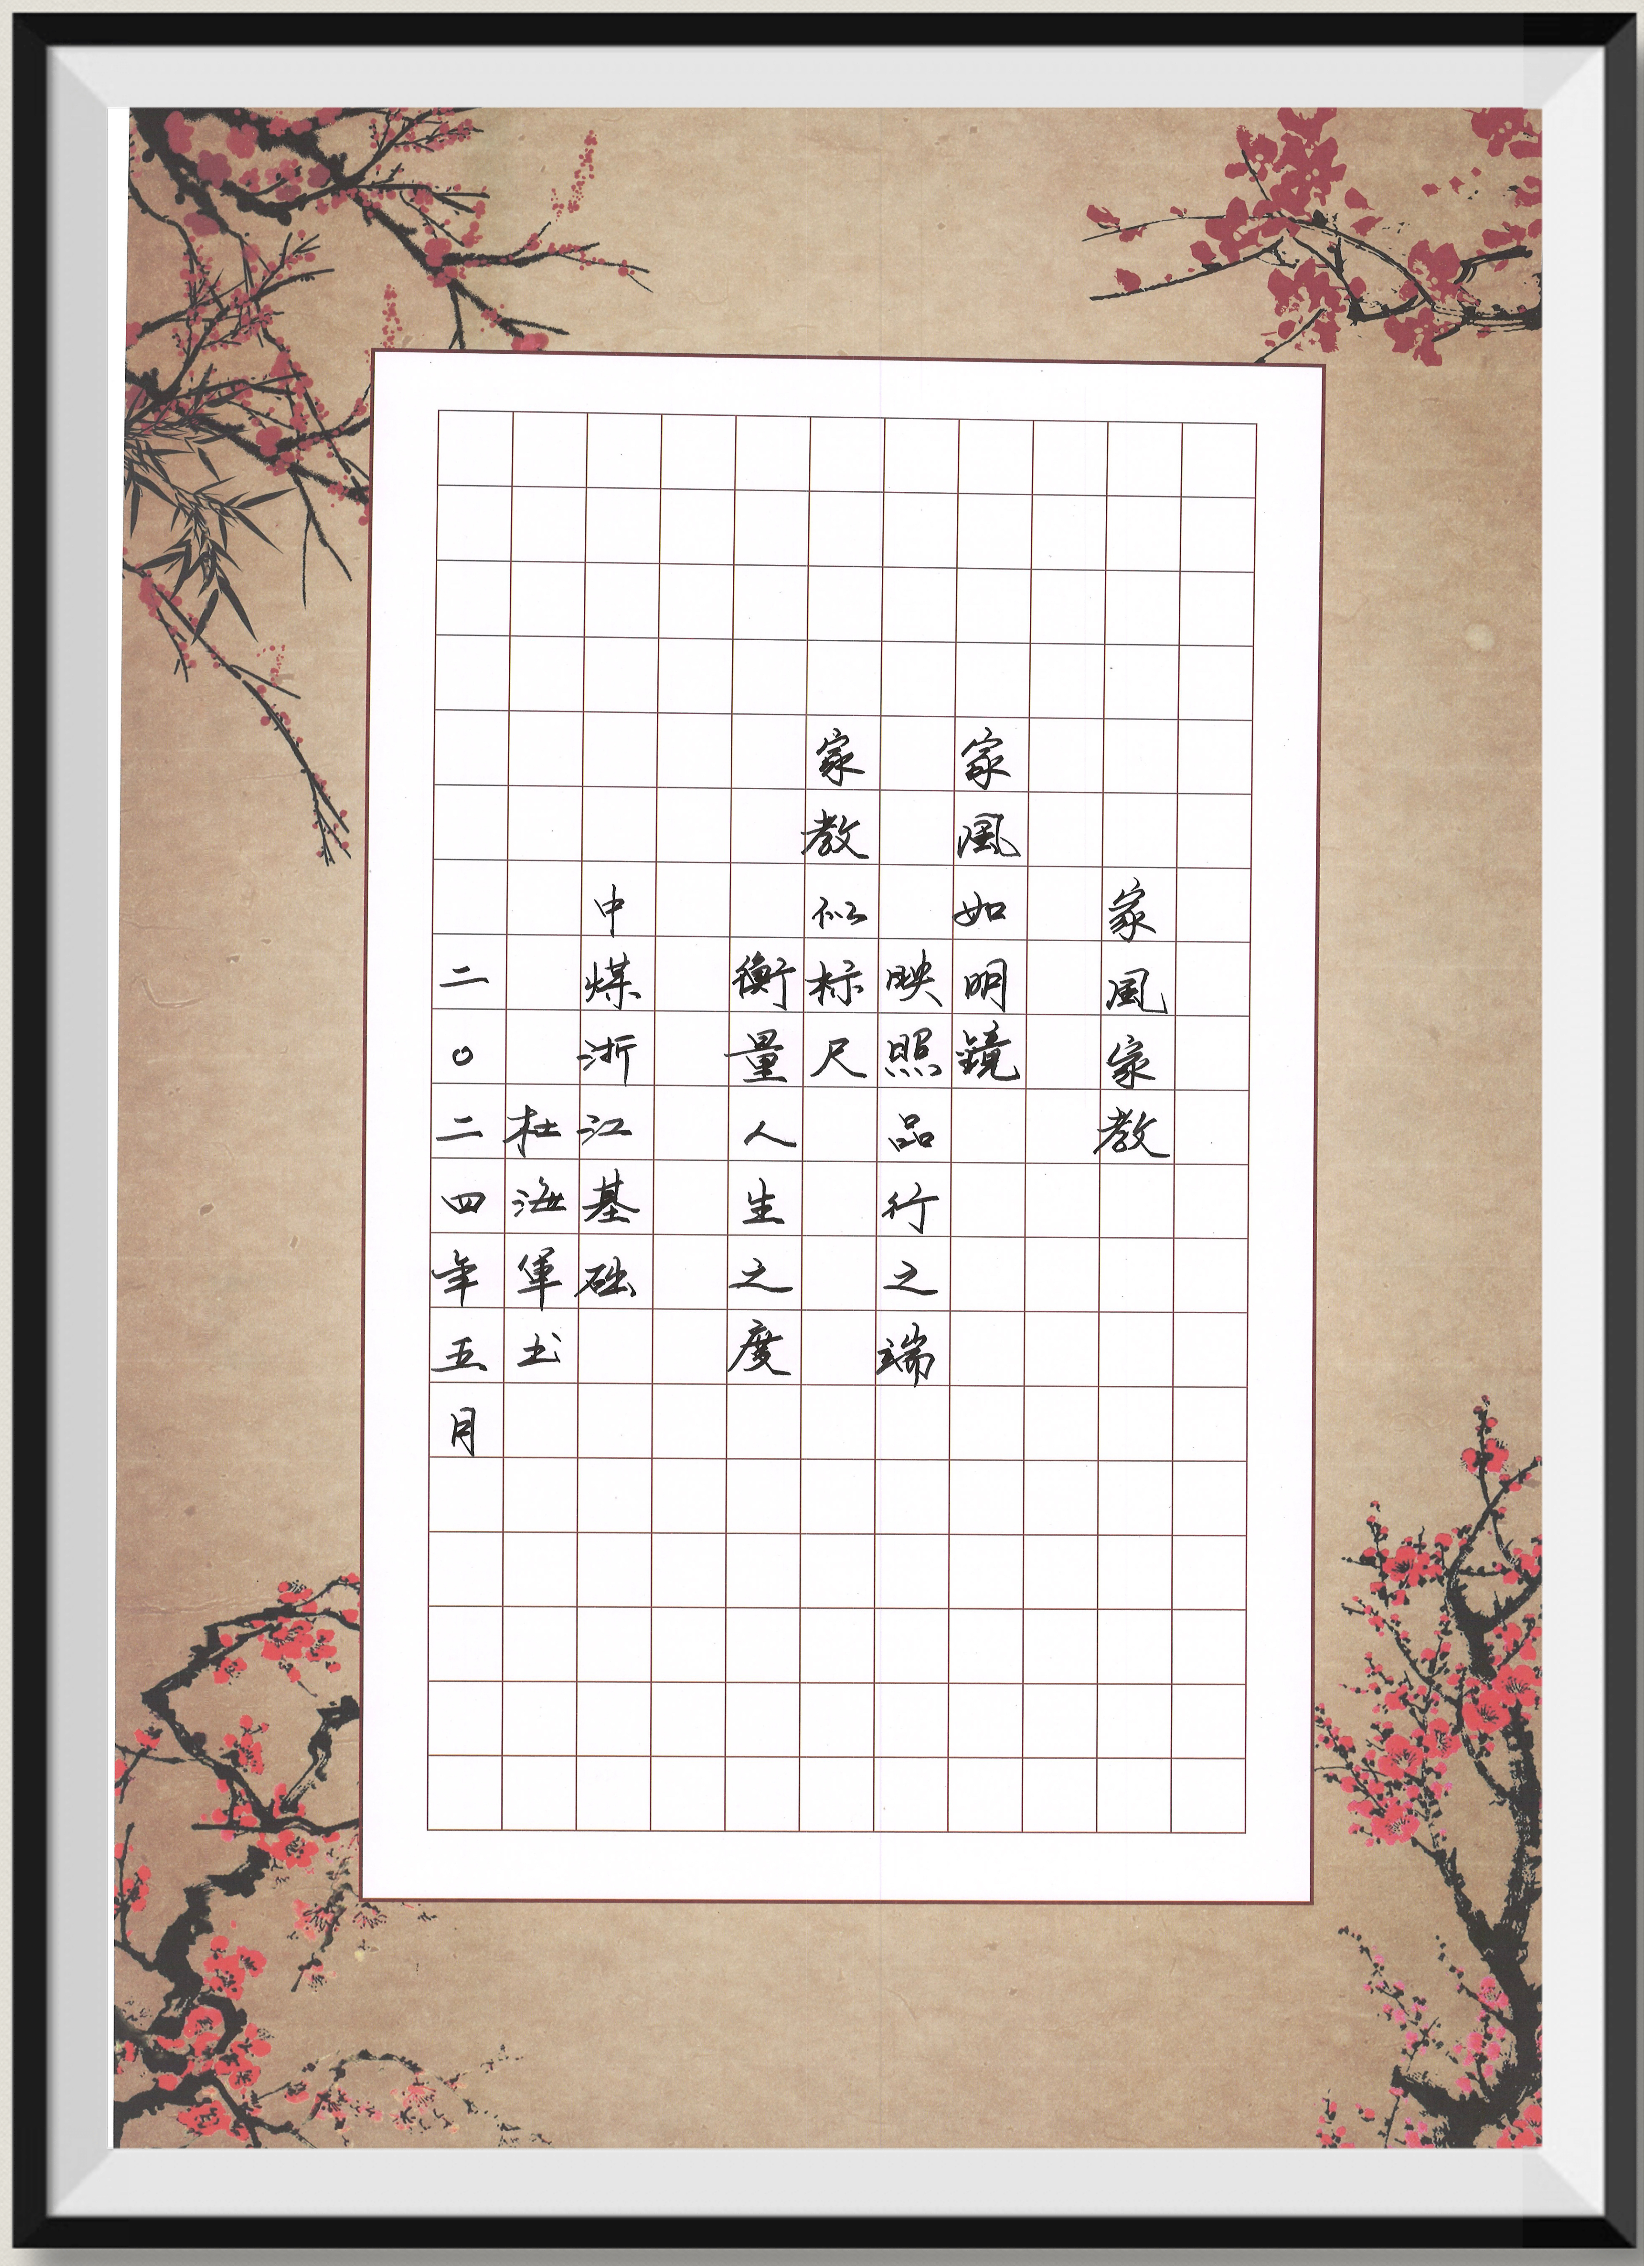 家風家教
家風如明鏡
映照品行之端
家教似标尺
衡量人生之度
中煤浙江基础
杜海军书
二〇二四年五月